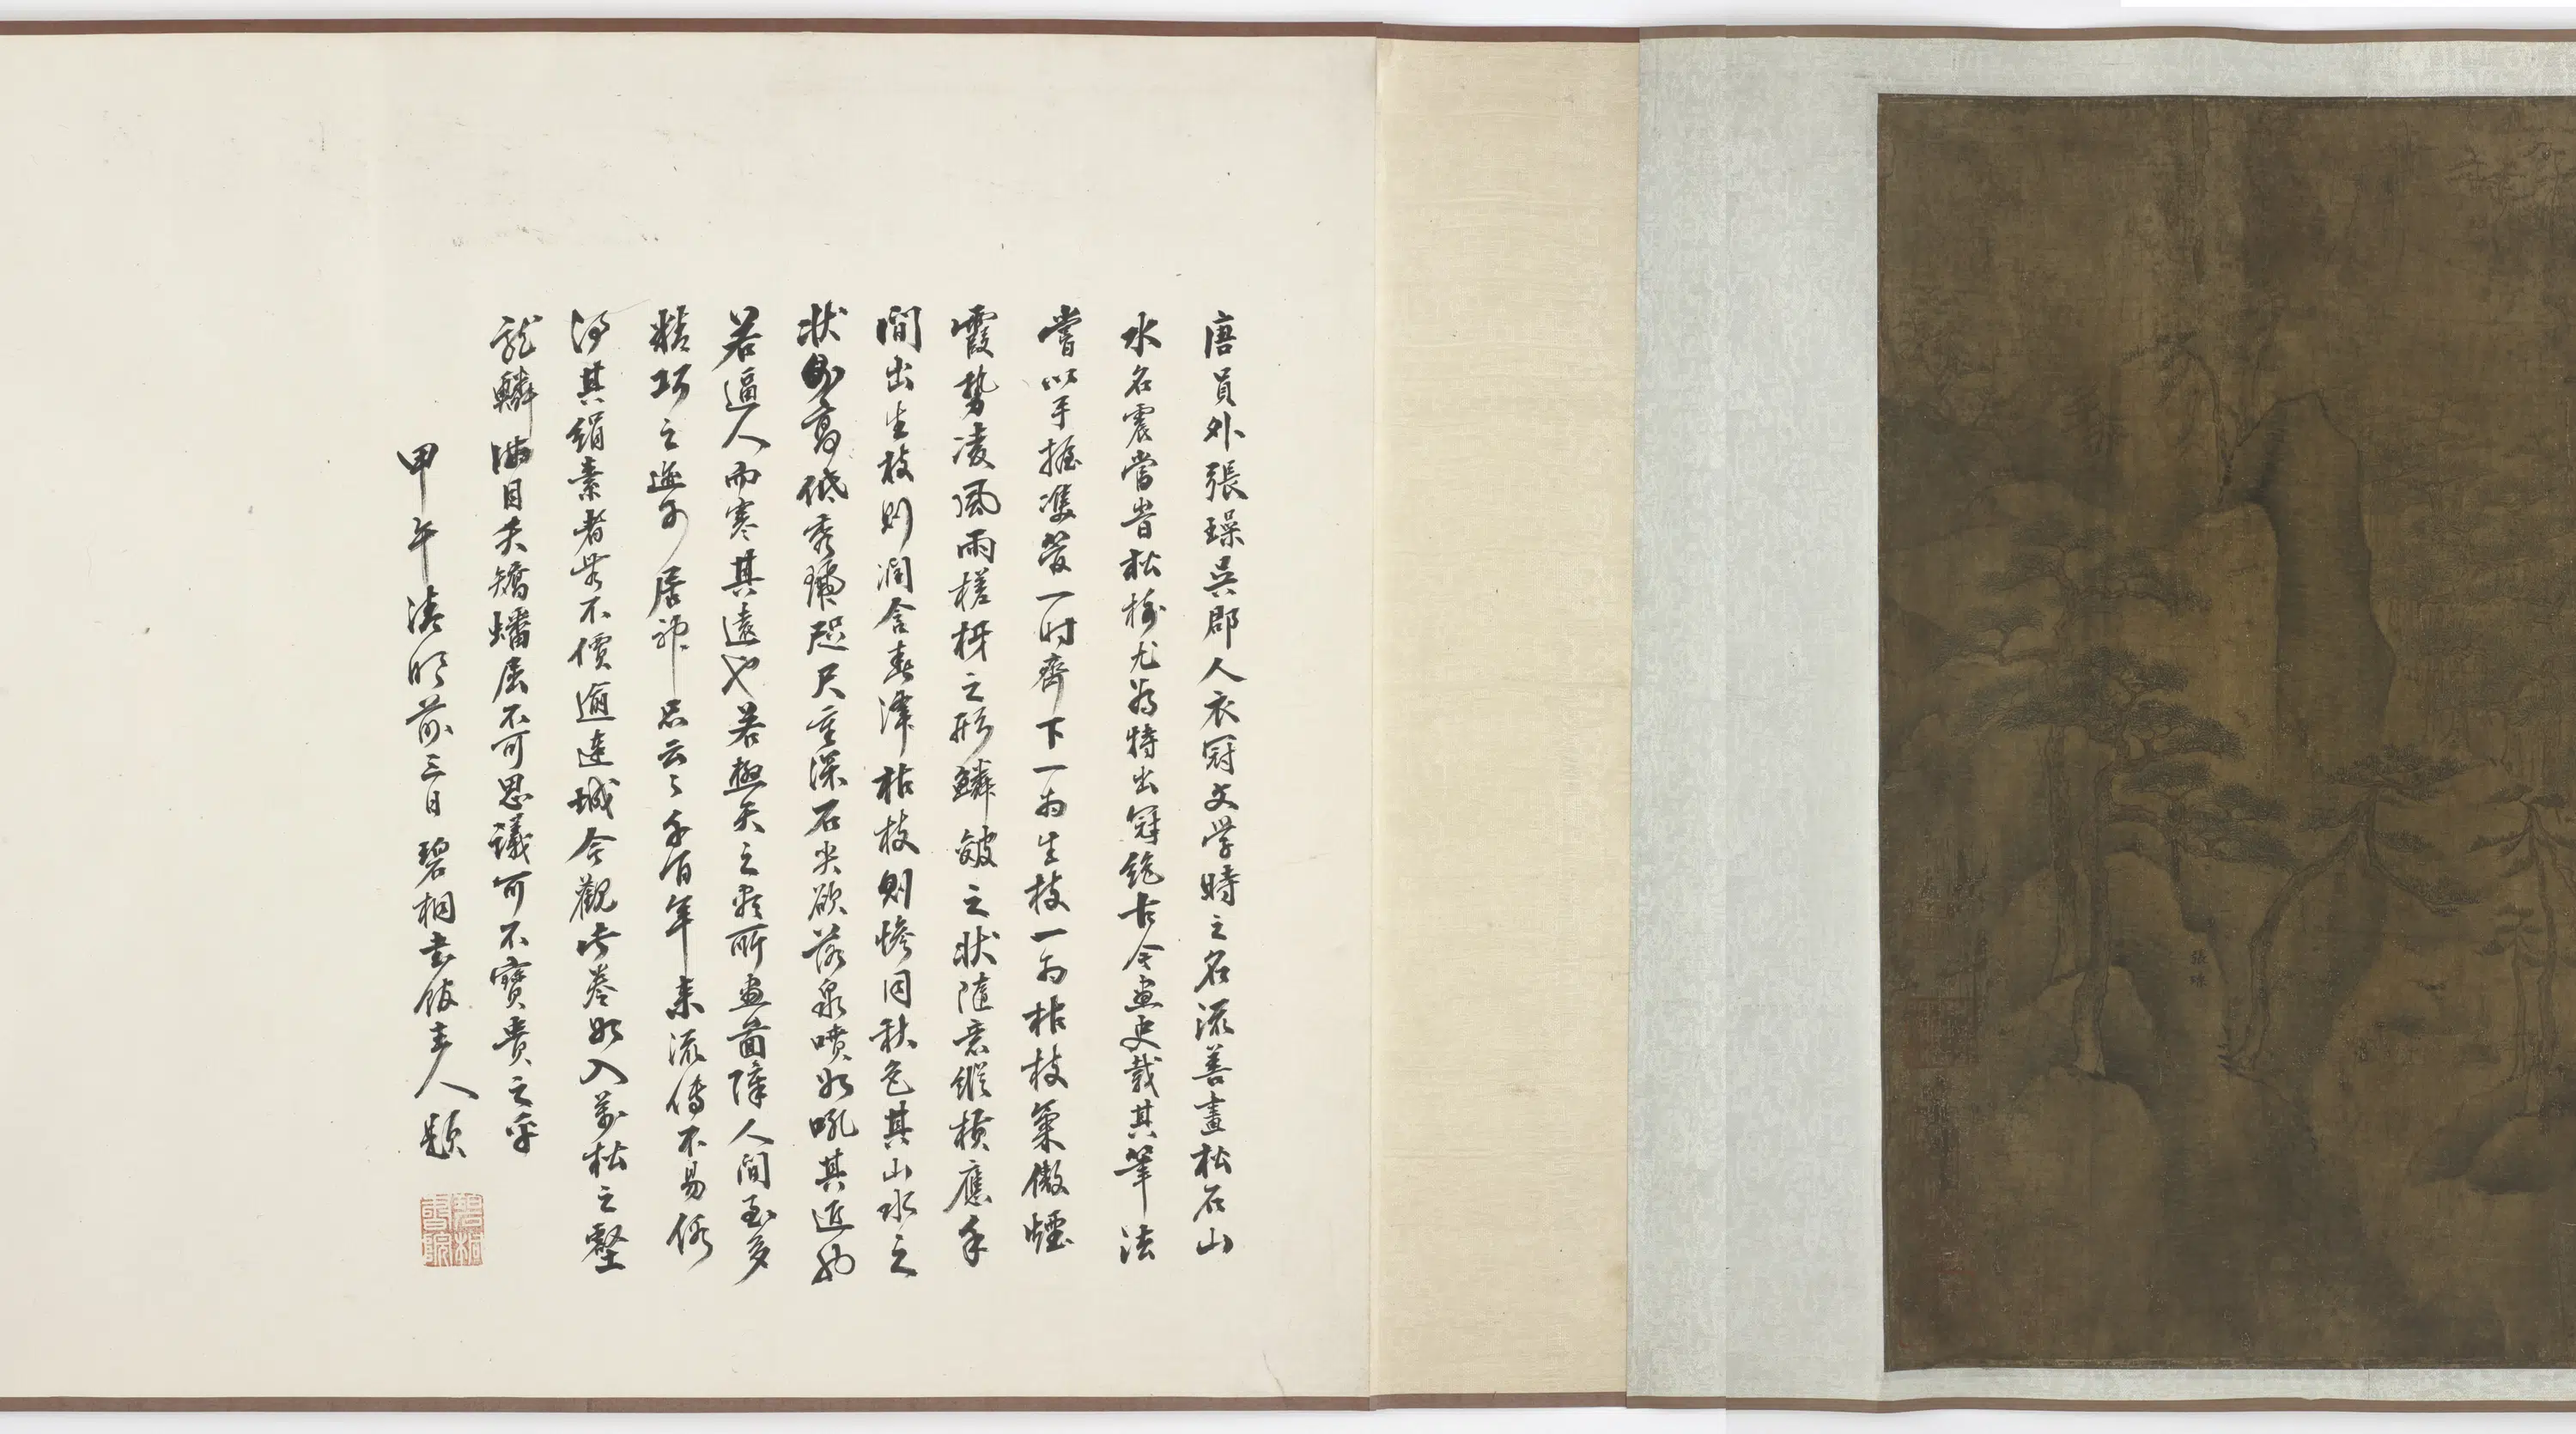 唐員外張璪吳郡人衣冠文学時之名流善畫松石山
水名震當時松樹尤為特出冠絕古今畫史載其筆法
嘗以手握雙管一時齊下一為生枝一為枯枝氣傲煙
霞勢凌風雨槎枒之形鱗皴之狀隨意縱橫應手
間出生枝則潤含春澤枯枝則慘同秋色其山水之
状則高低秀麗咫尺重深石尖欲落泉噴如吼其近也
若逼人而寒其遠也若極天之盡所畫圖障人間至多
精巧之迹可居神品云云千百年来流傳不易俗
得其絹素者无不價逾連城今觀此卷如入萬松之壑
龍鱗滿目夭矯蟠屈不可思議可不寶貴之乎
甲午清明前三日碧桐書館主人題
碧桐書館
張璪